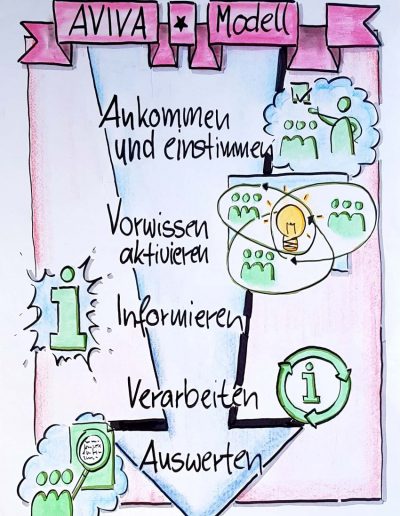 AVIVA ★ Modell
Ankommen
und einstimmen
Vorwissen
aktivieren
i Informieren
Verarbeiten i
Auswerten